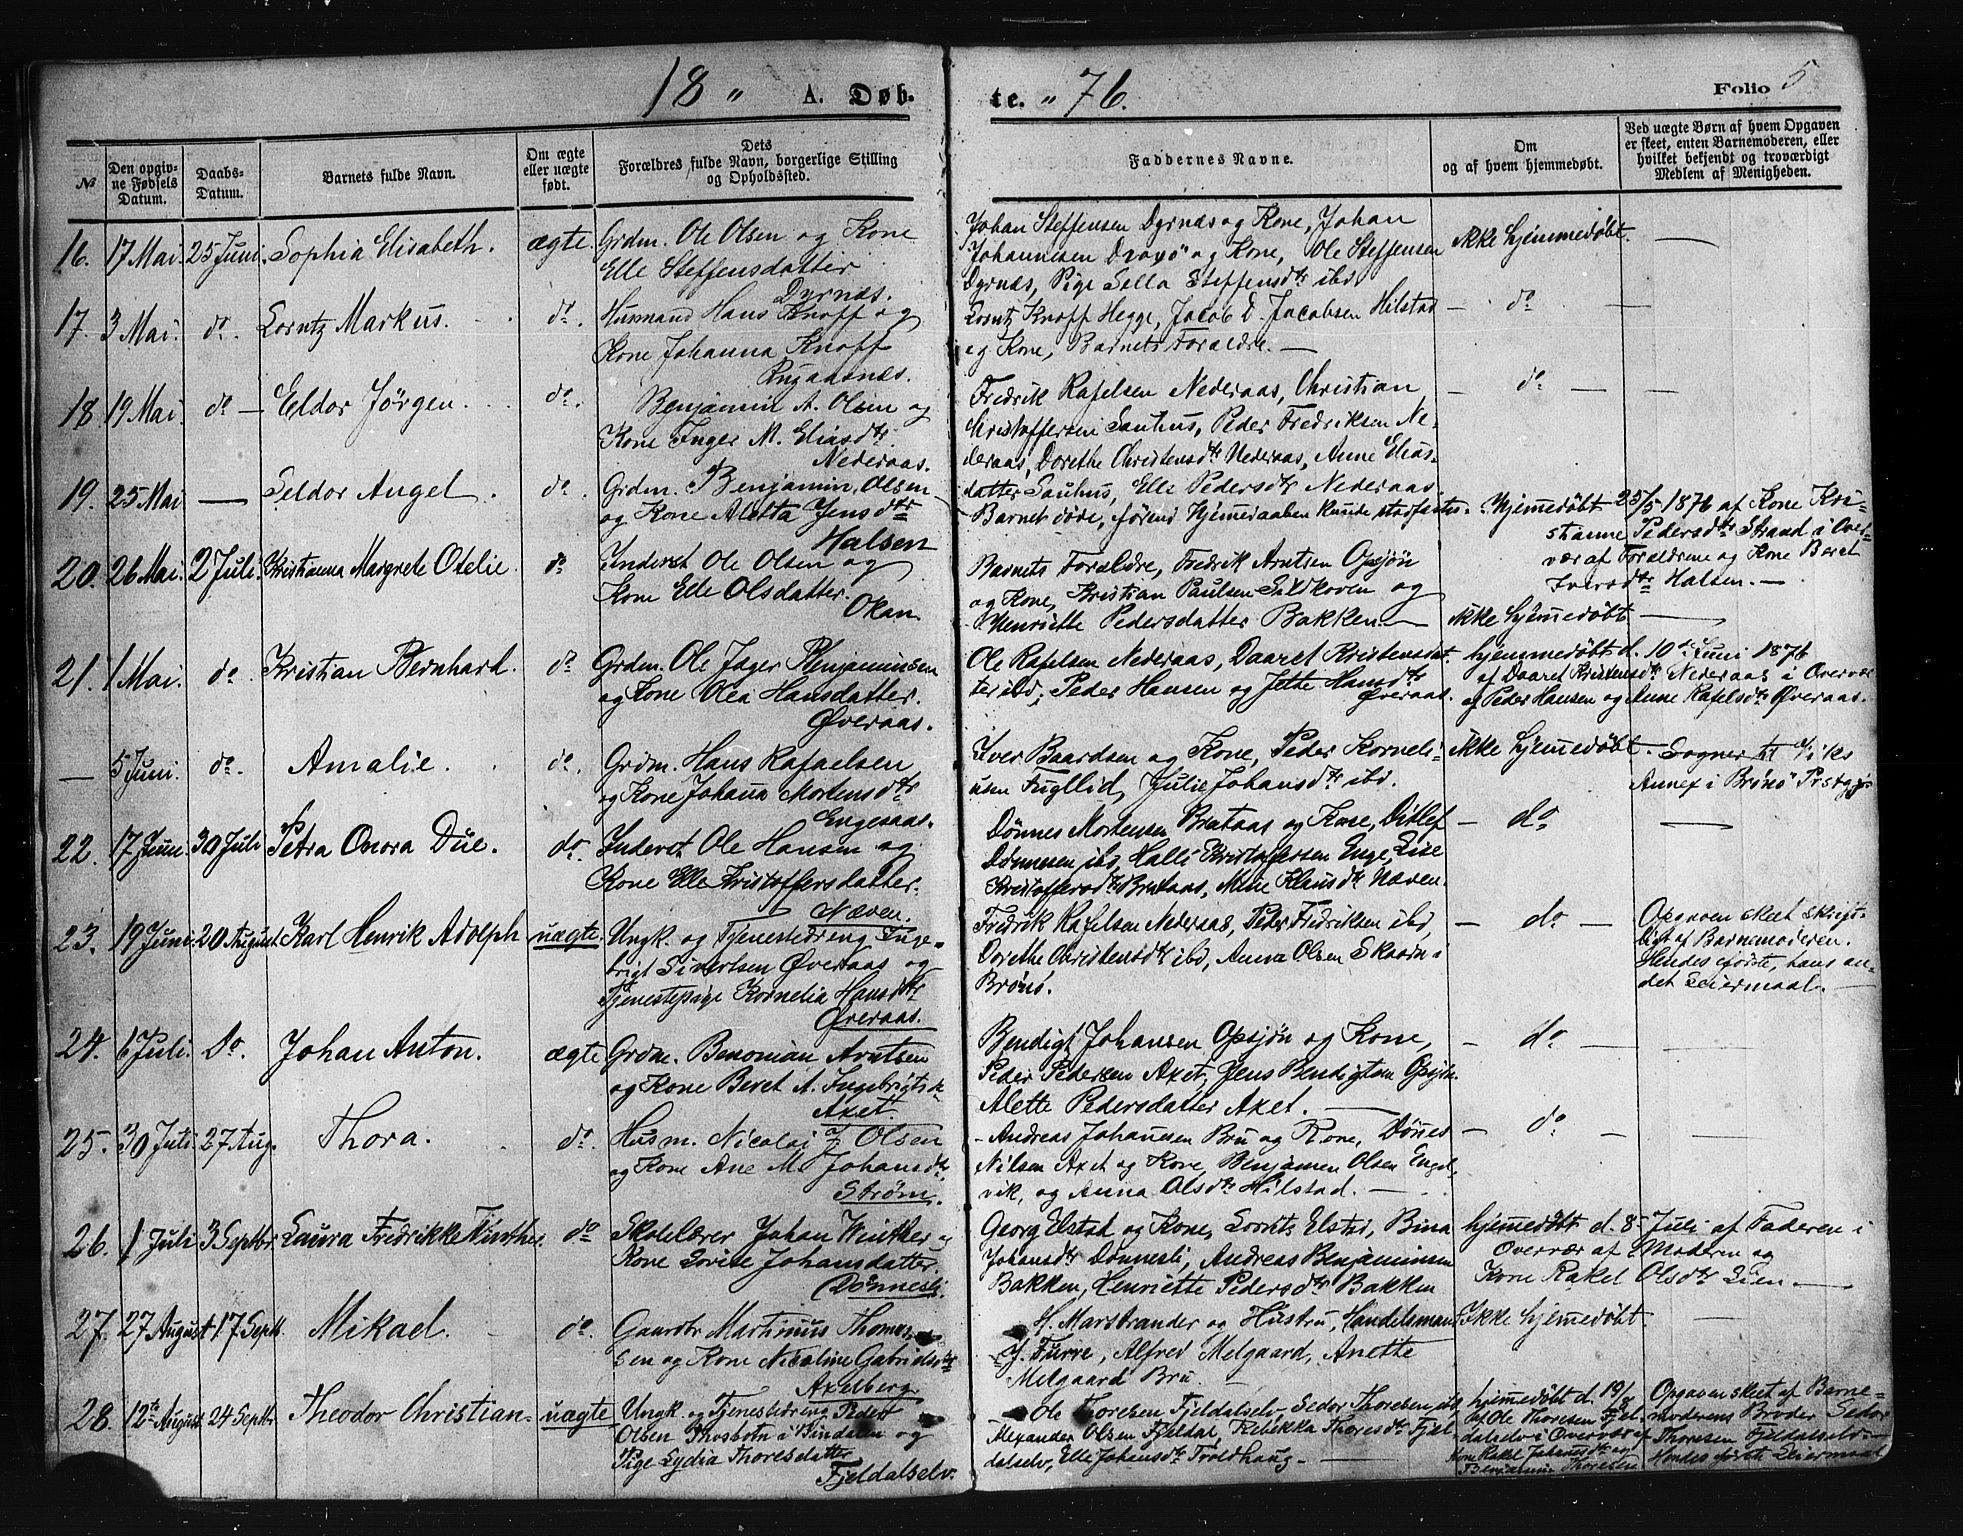 18 " A. Døb-
te. " 76.
Folio 5
№
Den opgiv-
ne Fødsels
Datum.
Daabs-
Datum.
Barnets fulde Navn.
Om ægte
eller uægte
født.
Dets
Forældres fulde Navn, borgerlige Stilling
og Opholdssted.
Faddernes Navne.
Om
og af hvem hjemmedøbt.
Ved uægte Børn af hvem Opgaven
er skeet, enten Barnemoderen, eller
hvilket bekjendt og troværdigt
Medlem af Menigheden.
16. 17 Mai. 25 Juni. Sophia Elisabeth. ægte.
Grdm. Ole Olsen og Kone
Elle Steffensdatter
Dyrnæs.
Johan Steffensen Dyrnæs og Kone, Johan
Johannesen og Kone, Ole Steffensen
Dyrnæs, Pige Steffensdtr ibd.
ikke hjemmedøbt. —
17. 3 Mai. do. Lorntz Markus. do.
Husmand Hans Knoff og
Kone Johanna Knoff
Rugaasnæs.
Lorntz Knoff Hegge, Jacob D. Jacobsen Hilstad
og Kone, Barnets Forældre. —
— do —
18. 19 Mai. do — Eldor Jørgen. do.
Benjamin A. Olsen og
Kone Inger M. Eliasdtr.
Nederaas.
Fredrik Rafelsen Nederaas, Christian
Christoffersen Sauhus, Peder Fredriksen Ne-
deraas, Dorethe Christensdtr Nederaas, Anne Elias-
datter Sauhus, Elle Pedersdtr Nederaas
— do — —
19. 25 Mai — Seldor Angel. do.
Grdm. Benjamin Olsen
og Kone Aletta Jensdtr
Halsen
Barnet døde, førend Hjemmedaaben kunde stadfæstes.
Hjemmedøbt 25/5 1876 af Kone Kri-
stianne Pedersdtr Strand i Over-
vær af Forældrene og Kone Beret
Iversdtr Halsen. —
20. 26 Mai. 2 Juli. Kristianna Margrete Otelie. do
Inderst Ole Olsen og
Kone Elle Olsdatter.
Okan.
Barnets Forældre, Fredrik Arntsen Opsjøn
og Kone, Kristian Paulsen Sildkoven og
Henriette Pedersdatter Bakken —
ikke hjemmedøbt —
21. 1 Mai. do. Kristian Bernhard. do
Grdm. Ole Jager Benjaminsen
og Kone Olea Hansdatter.
Øveraas.
Ole Rafelsen Nederaas, Daaret Kristensdat-
ter ibd, Peder Hansen og Jette Hansdtr
Øveraas.
hjemmedøbt d. 10de Juni 1876
af Daaret Kristensdtr Nederaas i Overvær
af Peder Hansen og Anne Rafelsdtr Øveraas.
— 5 Juni. do. Amalie. do.
Grdm. Hans Rafaelsen
og Kone Johanna Mortensdtr
Engesaas.
Iver Baardsen og Kone, Peder Korneli-
usen Fugllid, Julie Johansdtr ibd.
ikke hjemmedøbt — Sogner til Viks
Annex i Brønø Prstgj.
22. 17 Juni. 30 Juli Petra Onora Düe. do.
Inderst Ole Hansen og
Kone Elle Kristoffersdatter.
Næven.
Dønnes Mortensen Brataas og Kone, Ditlef
Dønnesen ibd, Halle Kristoffersen Enge, Lise
Kristoffersdtr Brataas, Mine Klausdtr Næven.
— do —
23. 19 Juni. 20 August Karl Henrik Adolph uægte.
Ungk. og Tjenestedreng Inge-
brigt Sivertsen Øveraas og
Tjenestepige Kornelia Hansdtr
Øveraas.
Fredrik Rafelsen Nederaas, Peder Fredriksen ibd,
Dorethe Christensdtr ibd, Anna Olsen Skaarn i
Brønø.
— do —
Opgaven skeet skrift-
ligt af Barnemoderen.
Hendes første, hans an-
det Leiermaal. —
24. 6 Juli. Do. Johan Anton. ægte
Grdm. Benonian Arntsen
og Kone Beret A. Ingebrigtsd.
Axet.
Bendigt Johansen Opsjøn og Kone,
Peder Pedersen Axet, Jens Bendigtsen Opsjøn
Alette Pedersdatter Axet. —
— do —
25. 30 Juli. 27 Aug. Thora. do.
Husm. Nicolaj J Olsen
og Kone Ane M. Johansdtr.
Strøm.
Andreas Johansen Bru og Kone, Dønnes
Nilsen Axet og Kone, Benjamen Olsen Enget-
vik, og Anna Olsdtr Hilstad. —
— do —
26. 1 Juli 3 Septbr. Laura Fredrikke Winther. do
Skolelærer Johan Winther og
Kone Lovise Johansdatter.
Dønnesli.
Georg Elstad og Kone, Lornts Elstad, Bina
Johansdtr Dønnesli, Andreas Benjaminsen
Bakken, Henriette Pedersdtr Bakken
hjemmedøbt d. 8 Juli af Faderen i
Overvær af Moderen og
Kone Rakel Olsdtr Lien. —
27. 27 August 17 Septb. Mikael. do.
Gaardbr Martinus Thomas-
sen og Kone Nicoline Gabrielsdtr
Axelberg.
H. Marstrander og Hustru, Handelsmand
J. Furre, Alfred Melgaard, Anette
Melgaard Bru.
Ikke hjemmedøbt. —
28. 12te August 24 Septbr. Theodor Christian. uægte
Ungk. og Tjenestedreng Peder
Olsen Thosbotn i Bindalen og
Pige Lydia Thoresdatter
Fjeldalselv.
Ole Thoresen Fjeldalselv, Sedor Thoresen ibd
Alexander Olsen Fjeldal, Rebekka Thoresdtr Fjel-
dalselv, Elle Johansdtr Troldhaug. —
hjemmedøbt d. 19/8
af Ole Thoresen Fjel-
dalselv i Overvær af
Kone Rakel Johansdtr og
Benjamin Thoresen
Opgaven skeet af Barne-
moderens Broder Sedor
Thoresen Fjeldalselv.
Hendes første Leiermaal